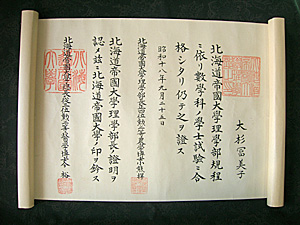 大杉冨美子
北海道帝國大學理學部規程
ニ依リ數學科ノ學士試驗ニ合
格シタリ仍テ之ヲ證ス
昭和十八年九月二十五日
北海道帝國大學理學部長
北海道帝國大學理學部長ノ證明ヲ
認メ茲ニ北海道帝國大學ノ印ヲ鈐ス
北海道帝國大學總長